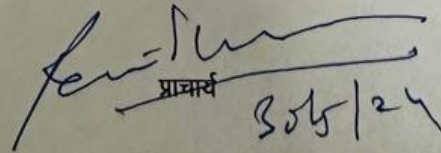 प्राचार्य
30/5/24